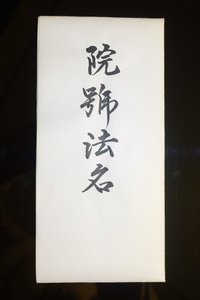 院號法名